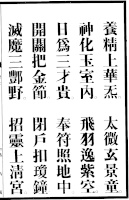 養精上華炁 太微玄景童
神化玉室內 飛羽逸紫空
日為三才貴 奉符照地中
開關把金節 閉戶扣瓊鐘
滅魔三酆野 招靈上清宮